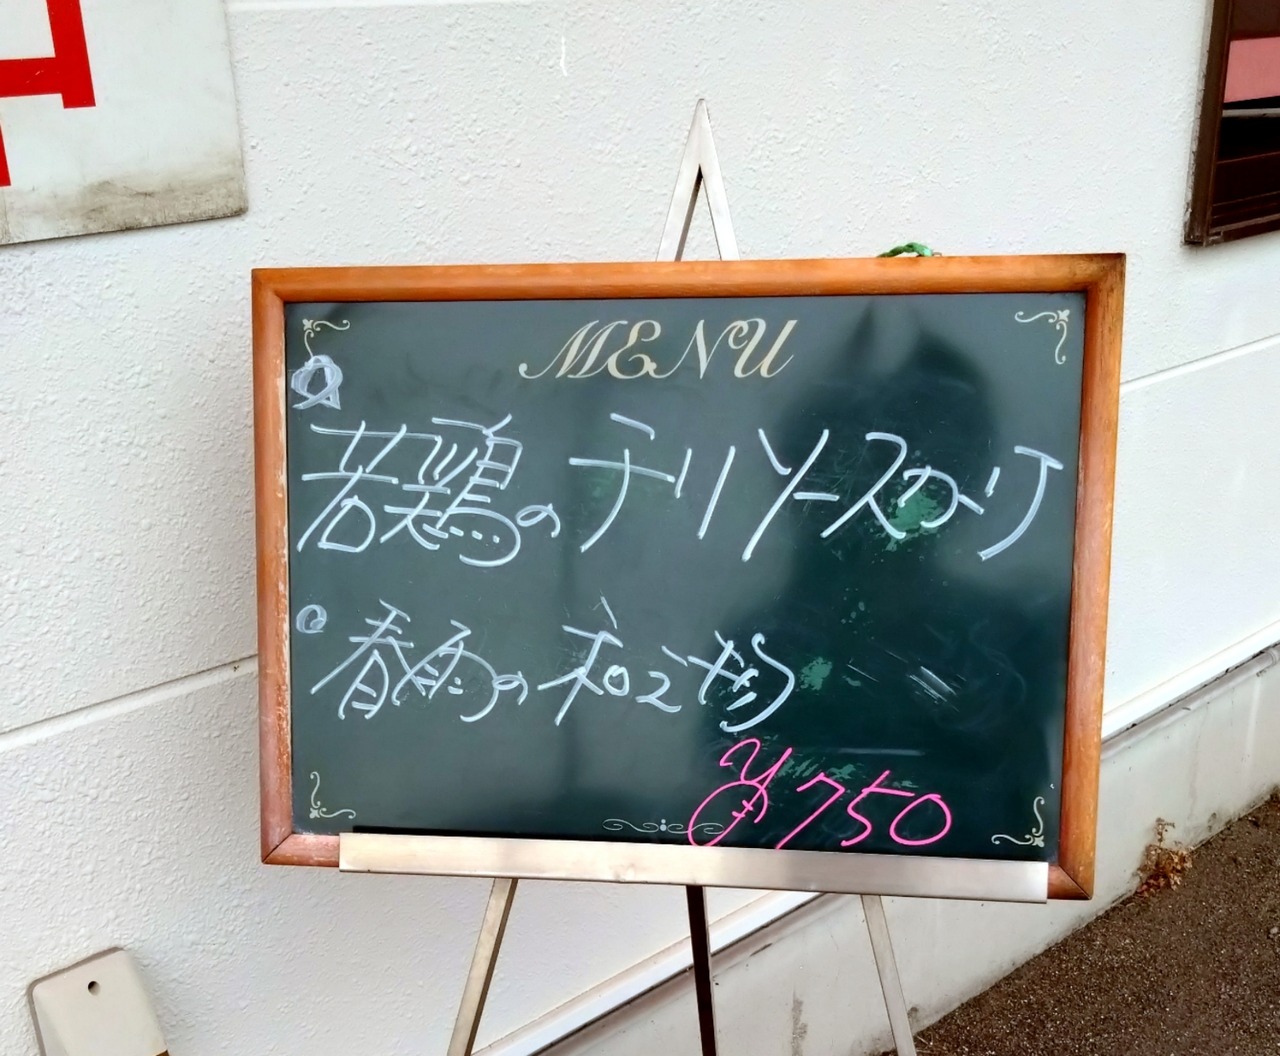 MENU
若鶏のチリソースカケ
春雨の和え物
¥750